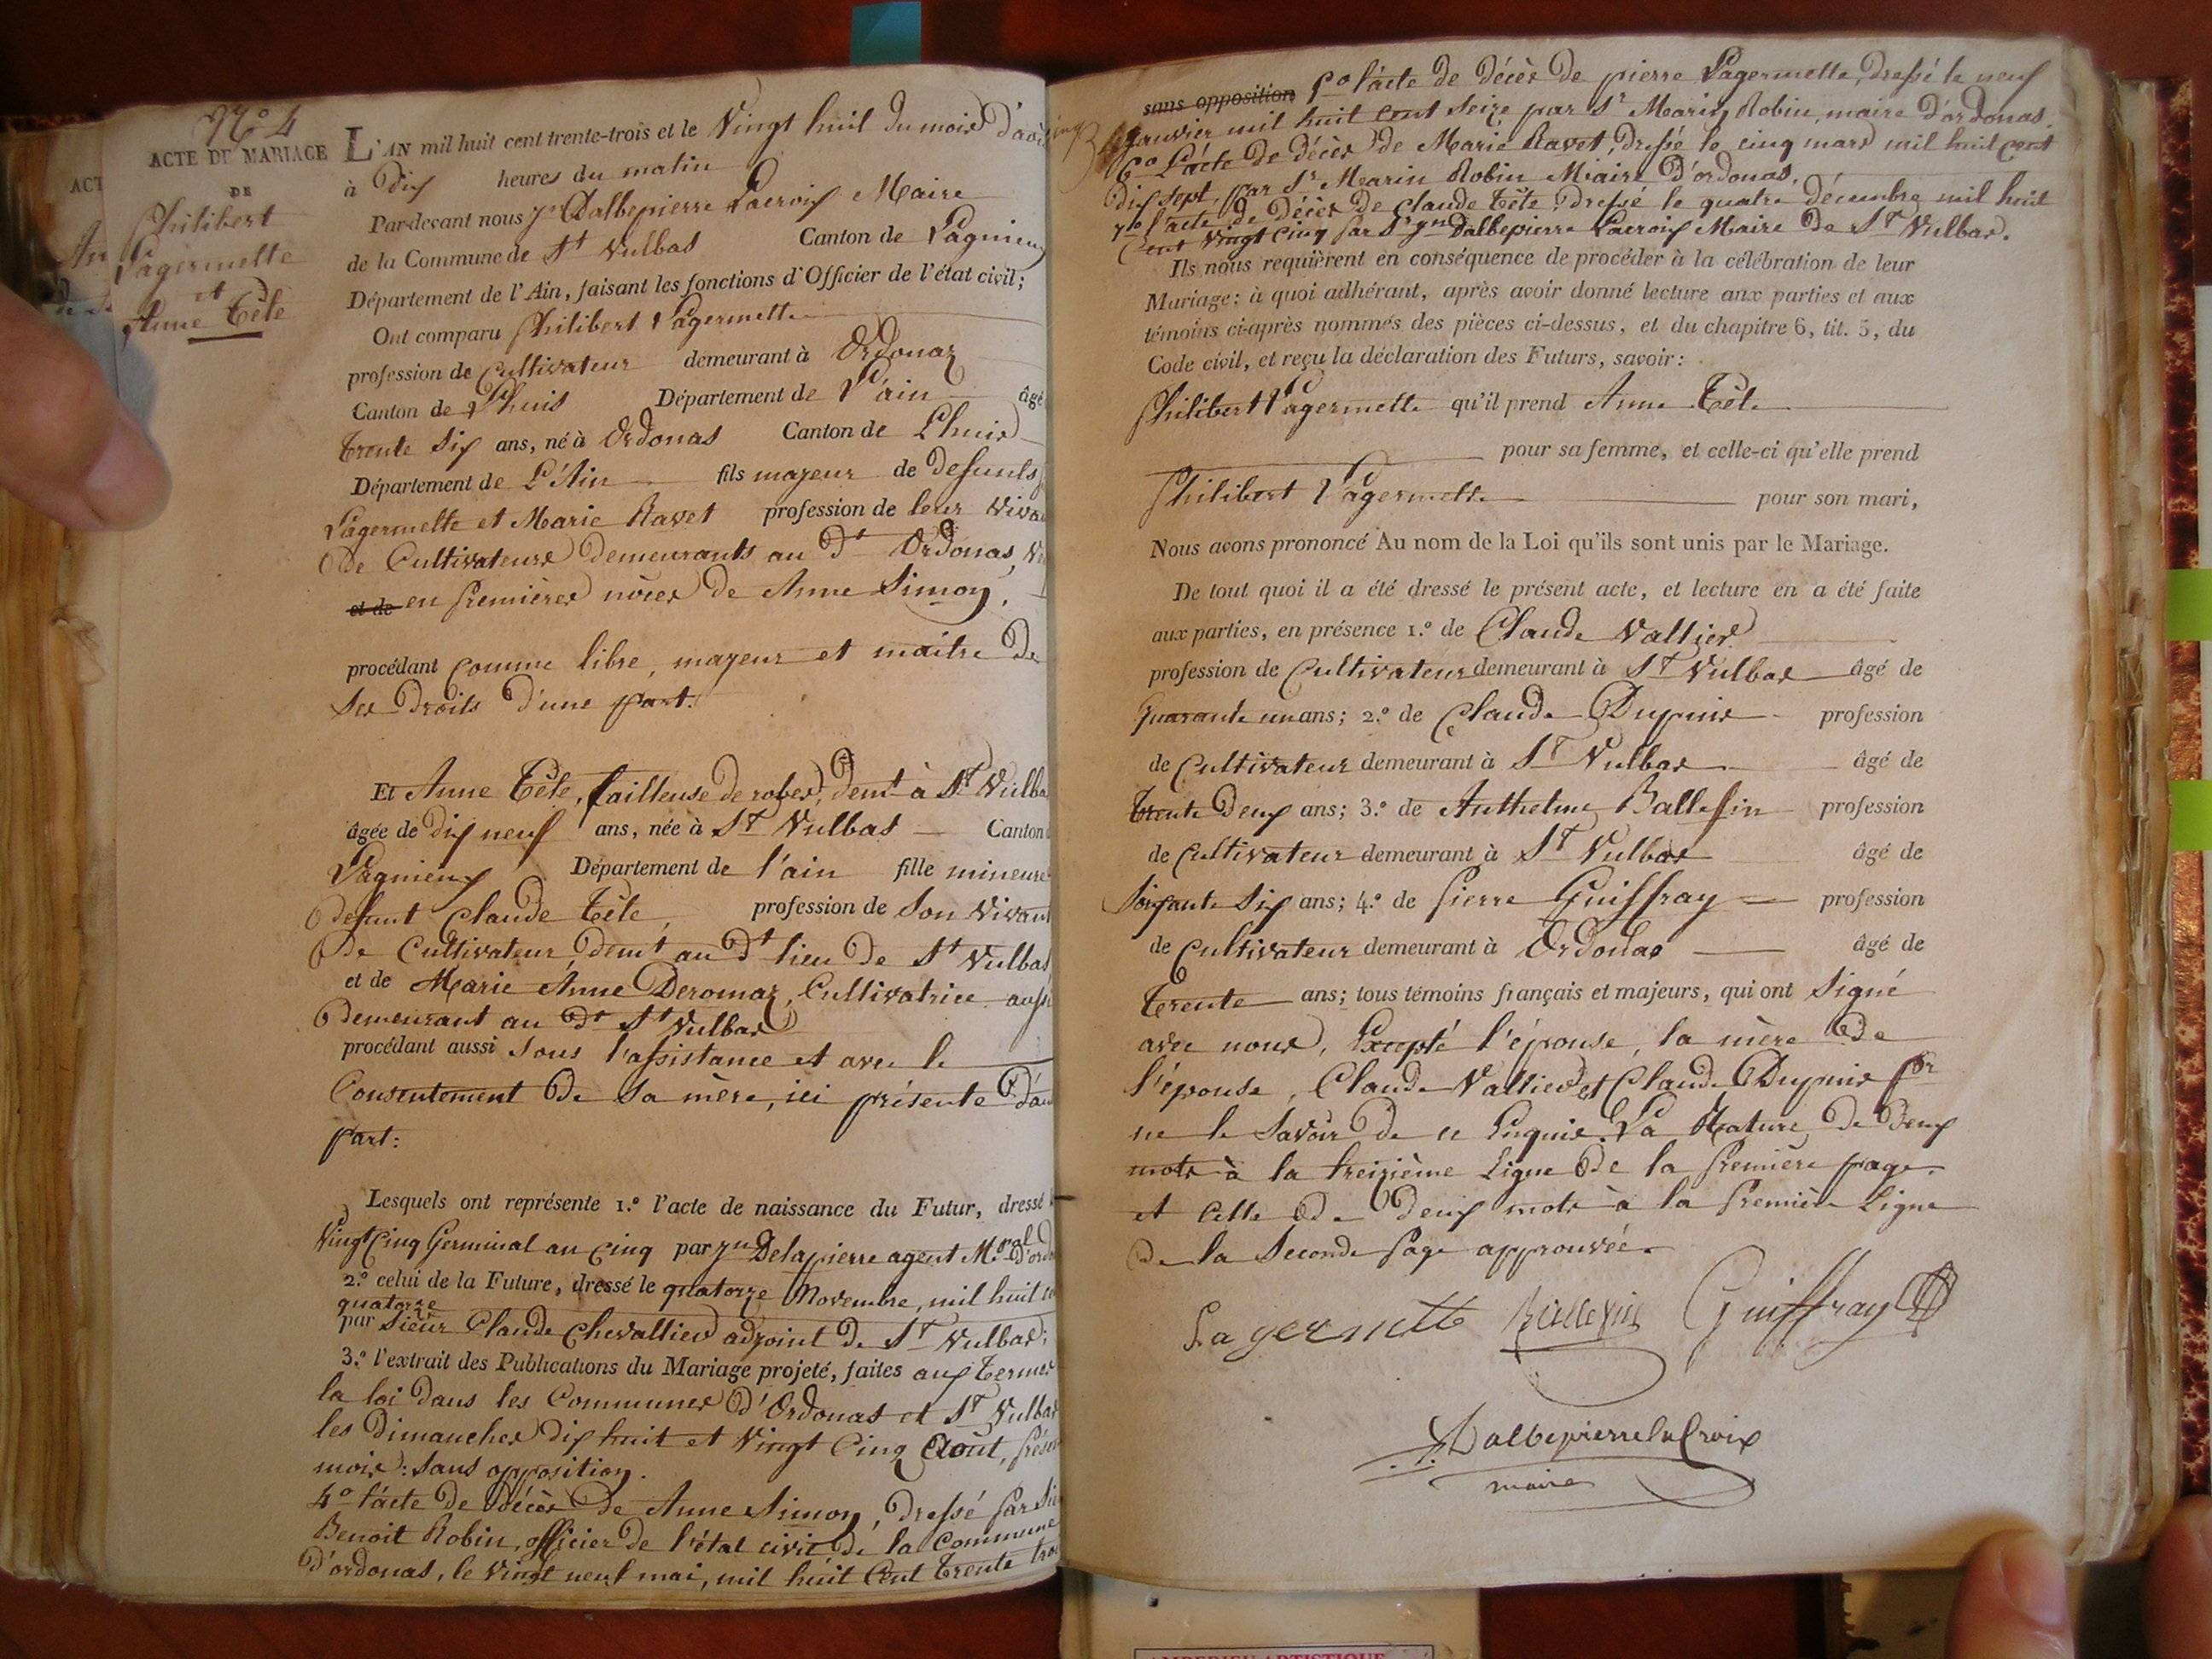 N.º 4
ACTE DE MARIAGE
DE
Philibert
Lagermette
et
Anne Tête
L'AN mil huit cent trente-trois et le Vingt huit du mois d'août
à dix heures du matin
Par-devant nous Dalbepierre Lacroix Maire
de la Commune de St Vulbas Canton de Lagnieu
Département de l'Ain, faisant les fonctions d'Officier de l'état civil;
Ont comparu Philibert Lagermette
profession de Cultivateur demeurant à Ordonaz
Canton de Lhuis Département de L'ain âgé
trente six ans, né à Ordonas Canton de Lhuis
Département de L'Ain fils majeur de defunts
Lagermette et Marie Ravet profession de leur viva
de Cultivateurs demeurants au dt Ordonas,
et de en premières nôces de Anne Simon,
procédant comme libre, majeur et maitre de
ses droits d'une part.
Et Anne Tête, tailleuse de robes, demt à St Vulba
âgée de dix neuf ans, née à St Vulbas Canton
Lagnieux Département de l'ain fille mineure
defunt Claude Tête, profession de son vivant
de Cultivateur, demt au dt lieu de St Vulbas
et de Marie Anne Deromaz, Cultivatrice aussi
demeurant au dt St Vulbas
procédant aussi sous l'assistance et avec le
Consentement de sa mère, ici présente d'au
part:
Lesquels ont représente 1.º l'acte de naissance du Futur, dressé
Vingt Cinq Germinal an Cinq par jn Delapierre agent M.pal d'ordo
2.º celui de la Future, dressé le quatorze Novembre, mil huit
quatorze
par Sieur Claude Chevallier adjoint de St Vulbas;
3.º l'extrait des Publications du Mariage projeté, faites aux termes
la loi dans les Communes d'Ordonas et St Vulbas
les Dimanches dix huit et Vingt Cinq Août, présen
mois: sans opposition.
4º l'acte de décès de Anne Simon, dressé par Sie
Benoit Robin, officier de l'état civil de la Commune
d'ordonas, le Vingt neuf mai, mil huit Cent trente troi
sans opposition 5º l'acte de décès de pierre Lagermette, dressé le neuf
Janvier mil huit cent seize par Sr Marin Robin, maire d'ordonas.
6º L'acte de décès de Marie Ravet, dressé le cinq mars mil huit cent
dix sept, par Sr Marin Robin Maire d'ordonas.
7º l'acte de décès de Claude Tête, dressé le quatre décembre mil huit
Cent Vingt Cinq par Sr jn Dalbepierre Lacroix Maire de St Vulbas.
Ils nous requièrent en conséquence de procéder à la célébration de leur
Mariage: à quoi adhérant, après avoir donné lecture aux parties et aux
témoins ci-après nommés des pièces ci-dessus, et du chapitre 6, tit. 5, du
Code civil, et reçu la déclaration des Futurs, savoir:
Philibert Lagermette qu'il prend Anne Tête
pour sa femme, et celle-ci qu'elle prend
Philibert Lagermette pour son mari,
Nous avons prononcé Au nom de la Loi qu'ils sont unis par le Mariage.
De tout quoi il a été dressé le présent acte, et lecture en a été faite
aux parties, en présence 1.º de Claude Vallier
profession de Cultivateur demeurant à St Vulbas âgé de
quarante un ans; 2.º de Claude Dupuis profession
de Cultivateur demeurant à St Vulbas âgé de
trente deux ans; 3.º de Anthelme Ballefin profession
de Cultivateur demeurant à St Vulbas âgé de
soixante six ans; 4.º de pierre Guiffray profession
de Cultivateur demeurant à Ordonas âgé de
trente ans; tous témoins français et majeurs, qui ont signé
avec nous, Excepté l'épouse, la mère de
l'épouse, Claude Vallier et Claude Dupuis pour
ne le savoir de ce Enquis. La Rature de deux
mots à la treizième Ligne de la première page
et Celle de deux mots à la première Ligne
de la Seconde page approuvée.
Lagermette Guiffray
Dalbepierre LaCroix
maire
AMBERIEU ARTISTIQUE